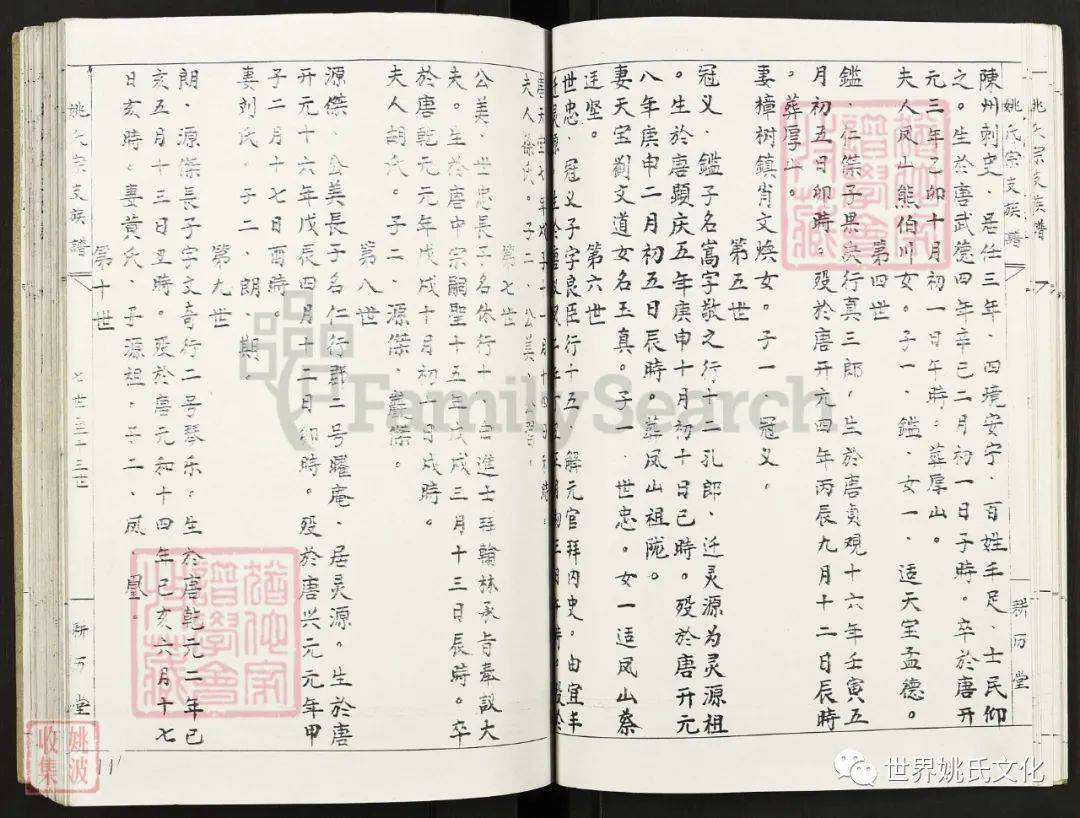 姚氏宗支族谱
耕历堂
陳州刺史．居任三年．四境安宁．百姓手足．士民仰
之。生於唐武德四年辛巳二月初一日子時。卒於唐开
元三年己卯十月初一日午時。葬厚山。
夫人凤山熊伯川女。子一、鑑．女一、适天宝孟德。
第四世
鑑．仁傑子果决行真三郎．生於唐贞观十六年壬寅五
月初五日卯時。殁於唐开元四年丙辰九月十二日辰時
。葬厚山。
妻樟树鎮肖文焕女。子一　冠义。
第五世
冠义．鑑子名嵩字敬之行十二孔郎．迁灵源为灵源祖
。生於唐顕庆五年庚申十月初十日己時。殁於唐开元
八年庚申二月初五日辰時。葬凤山祖陇。
妻天宝劉文道女名玉真。子一　世忠。女一适凤山蔡
迋坚。
第六世
世忠．冠义子字良臣行十五．解元官拜内史。由宜丰
夫人徐氏。子二、公美、
第七世
公美．世忠長子名休行十一官進士拜翰林承旨奉議大
夫。生於唐中宗嗣聖十五年戊戌三月十三日辰時。卒
於唐乾元元年戊戌十月初一日戌時。
夫人胡氏。子二．源傑．巖傑。
第八世
源傑．公美長子名仁行群二号曜庵．居灵源。生於唐
开元十六年戊辰四月十二日卯時。殁於唐兴元元年甲
子二月十七日酉時。
妻刘氏。子二、朗．期。
第九世
朗．源傑長子字文奇行二号琴乐。生於唐乾元二年己
亥五月十三日丑時。殁於唐元和十四年己亥六月十七
日亥時。妻黄氏　子源祖．子二、凤．凰．
第十世
姚氏宗支族譜
七世至十三世
耕历堂
11
FamilySearch
姚波
收集
世界姚氏文化